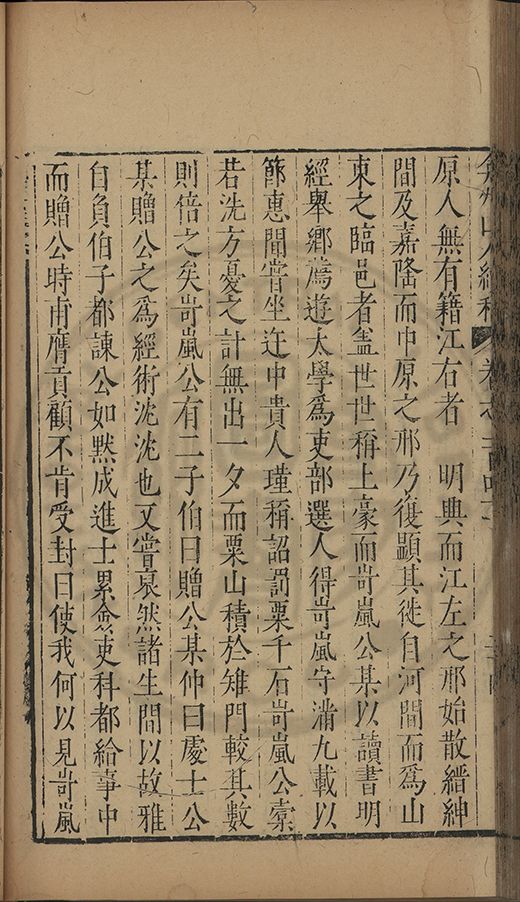 弇州山人續稿 卷之一百
原人無有籍江右者　明典而江左之邢始散縉紳
間及嘉隆而中原之邢乃復顯其徙自河間而爲山
東之臨邑者盖世世稱上豪而岢嵐公某以讀書明
經舉鄉薦遊太學爲吏部選人得岢嵐守滿九載以
節惠聞嘗坐迕中貴人瑾稱詔罰粟千石岢嵐公橐
若洗方憂之計無出一夕而粟山積於雉門較其數
則倍之矣岢嵐公有二子伯曰贈公某仲曰處士公
某贈公之爲經術沈沈也又嘗裒然諸生間以故雅
自負伯子都諫公如黙成進士累𠫵吏科都給事中
而贈公時甫膺貢顧不肯受封曰使我何以見岢嵐